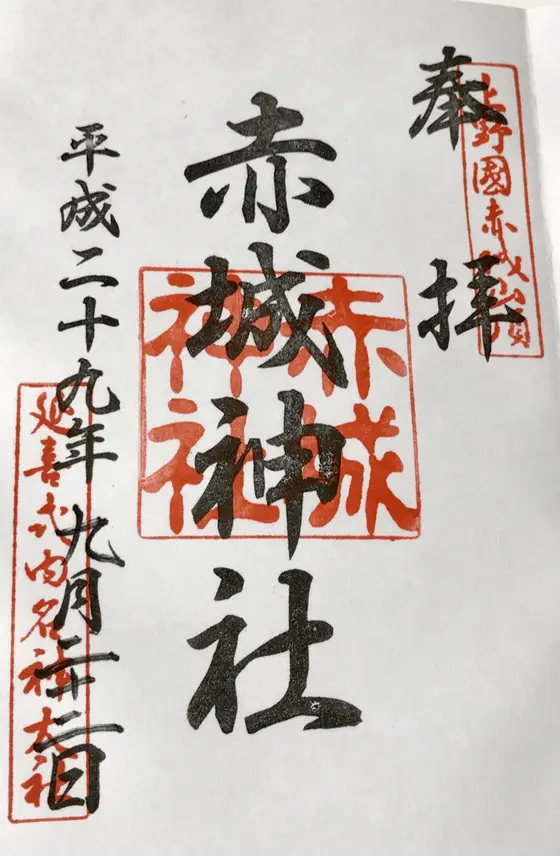 奉拝
上野國赤城山頂
赤城神社
赤城神社
平成二十九年九月二十二日
延喜式内名神大社